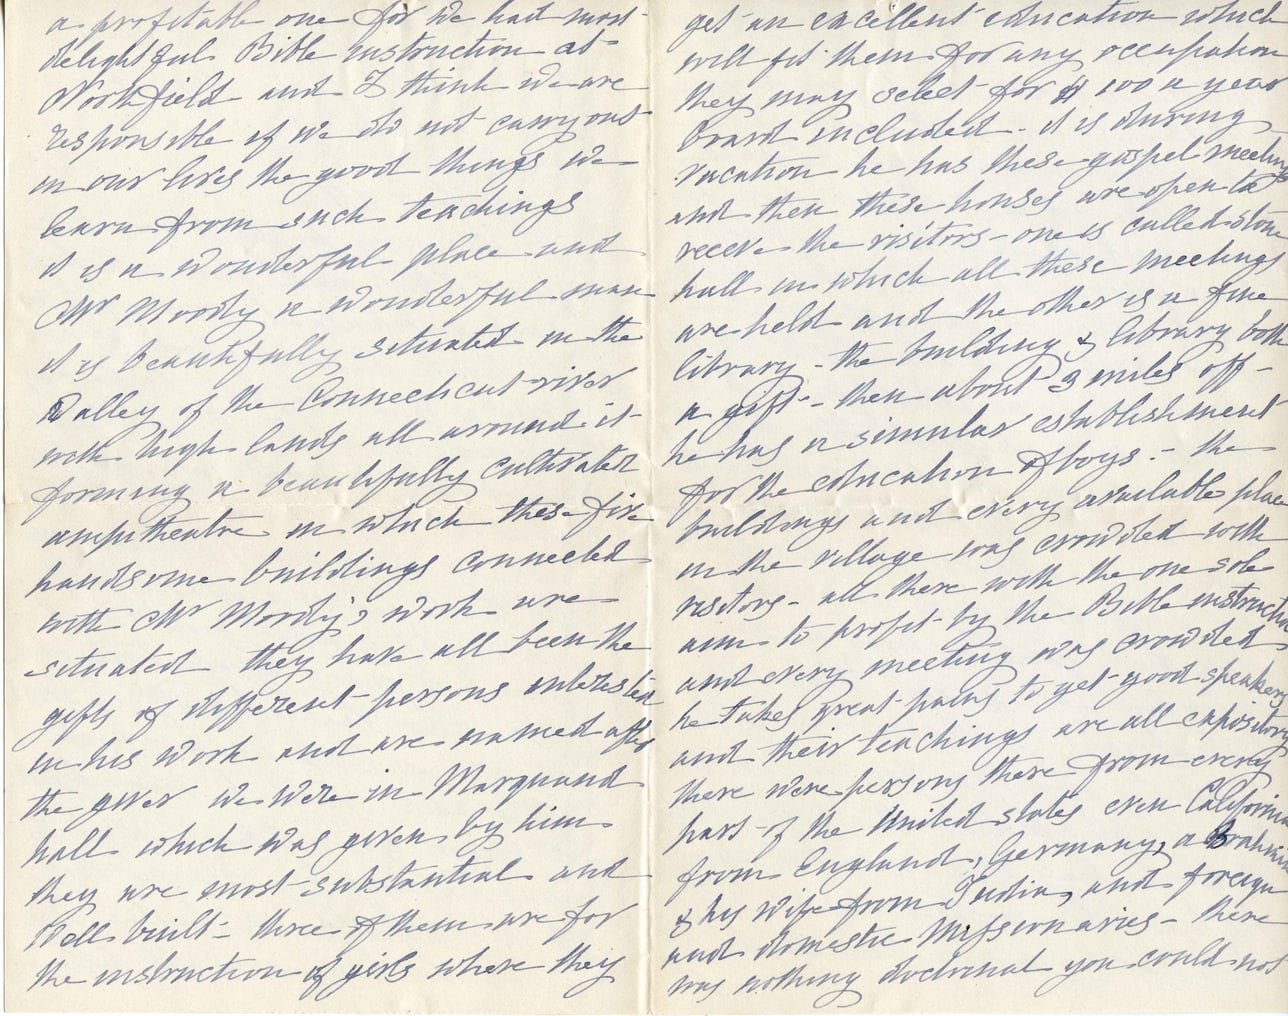 a profitable one for we had most
delightful Bible instruction at
Northfield and I think we are
responsible if we do not carry out
in our lives the good things we
learn from such teachings
it is a wonderful place and
Mr Moody a wonderful man
it is beautifully situated in the
Valley of the Connecticut river
with high lands all around it
forming a beautifully cultivated
ampitheatre in which these five
handsome buildings connected
with Mr Moody's work are
situated they have all been the
gifts of different persons interested
in his work and are named after
the giver we were in Marquand
hall which was given by him
they are most substantial and
well built - three of them are for
the instruction of girls where they
get an excellent education which
will fit them for any occupation
they may select for $100 a year
board included - it is during
vacation he has these gospel meetings
and then these houses are open to
receive the visitors - one is called Stone
hall in which all these meetings
are held and the other is a fine
library - the building & library both
a gift - then about 3 miles off -
he has a similar establishment
for the education of boys. - the
buildings and every available place
in the village was crowded with
visitors - all there with the one sole
aim to profit by the Bible instruction
and every meeting was crowded
he takes great pains to get good speakers
and their teachings are all expository
there were persons there from every
part of the United States even California
from England, Germany, a Brahmin
& his wife from India, and foreign
and domestic Missionaries - there
was nothing doctrinal you could not